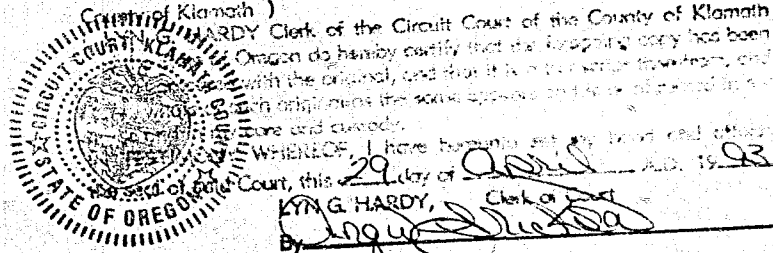 County of Klamath )
LYN G. HARDY Clerk of the Circuit Court of the County of Klamath
of Oregon do hereby certify that the foregoing copy has been
with the original, and that it is a transcript therefrom, and
original as the same appears
care and custody.
WHEREOF, I have hereunto set my hand and official
the seal of said Court, this 29 day of April A.D. 1993
LYN G. HARDY, Clerk of Court
By
CIRCUIT COURT, KLAMATH COUNTY
STATE OF OREGON